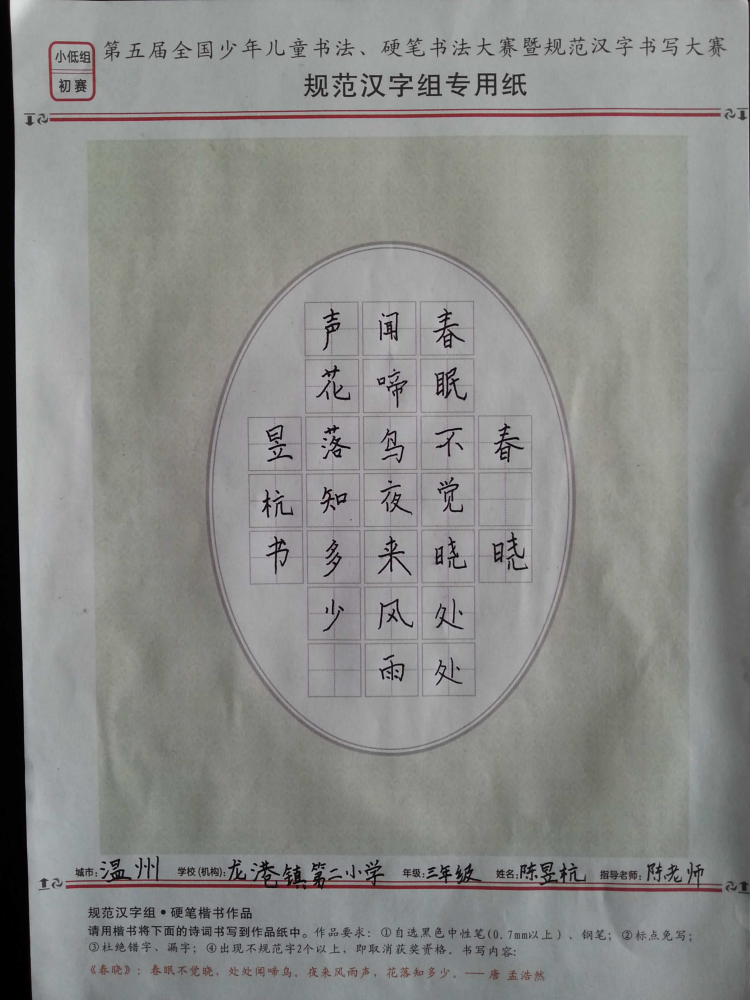 小低组
初赛
第五届全国少年儿童书法、硬笔书法大赛暨规范汉字书写大赛
规范汉字组专用纸
春晓
春眠不觉晓处处
闻啼鸟夜来风雨
声花落知多少
昱杭书
城市:温州 学校(机构):龙港镇第二小学 年级:三年级 姓名:陈昱杭 指导老师:陈老师
规范汉字组•硬笔楷书作品
请用楷书将下面的诗词书写到作品纸中。作品要求:①自选黑色中性笔(0.7mm以上)、钢笔;②标点免写;
③杜绝错字、漏字;④出现不规范字2个以上,即取消获奖资格。书写内容:
《春晓》:春眠不觉晓,处处闻啼鸟。夜来风雨声,花落知多少。——唐 孟浩然